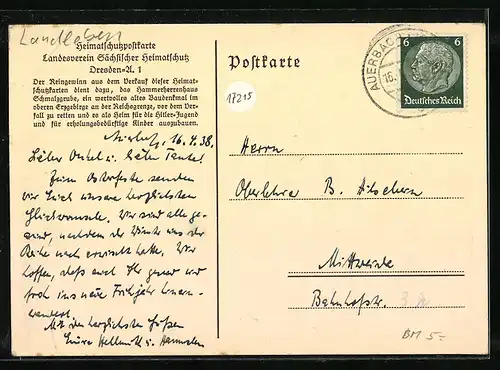 Landleben
Heimatschutzpostkarte
Landesverein Sächsischer Heimatschutz
Dresden-A. 1
Der Reingewinn aus dem Verkauf dieser Heimat-
schutzkarten dient dazu, das Hammerherrenhaus
Schmalzgrube, ein wertvolles altes Baudenkmal im
oberen Erzgebirge an der Reichsgrenze, vor dem Ver-
fall zu retten und es als Heim für die Hitler-Jugend
und für erholungsbedürftige Kinder auszubauen.
16.4.38.
Lieber Onkel u. liebe Tante!
Zum Osterfeste senden
wir Euch unsere herzlichsten
Glückwünsche. Wir sind alle ge-
sund, nachdem der Winter uns der
Reihe nach erwischt hatte. Wir
hoffen, daß auch Ihr gesund und
froh ins neue Frühjahr
Mit den herzlichsten Grüßen
Eure Hellmuth u.
Postkarte
17215
AUERBACH
16.
6 6
Deutsches Reich
Herrn
Oberlehrer B.
Mittweida
Bahnhofstr.
BM 5=